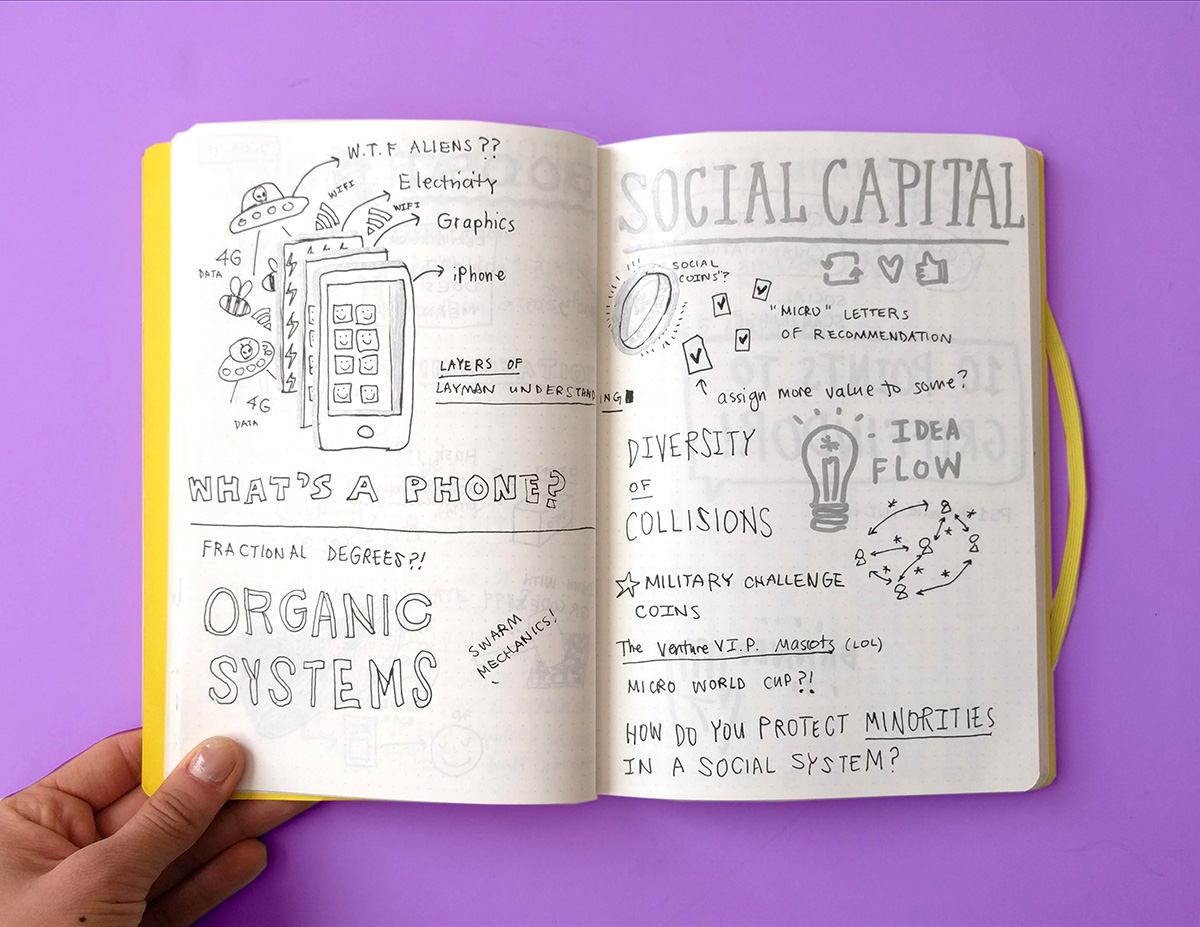 W.T.F ALIENS??
WIFI
Electricity
WIFI
Graphics
4G
DATA
iPhone
4G
DATA
LAYERS OF
LAYMAN UNDERSTANDING
WHAT'S A PHONE?
FRACTIONAL DEGREES?!
ORGANIC
SYSTEMS
SWARM
MECHANICS!
SOCIAL CAPITAL
SOCIAL
COINS"?
"MICRO" LETTERS
OF RECOMMENDATION
assign more value to some?
DIVERSITY
OF
COLLISIONS
- IDEA
FLOW
MILITARY CHALLENGE
COINS
The Venture V.I.P. Mascots (LOL)
MICRO WORLD CUP?!
HOW DO YOU PROTECT MINORITIES
IN A SOCIAL SYSTEM?